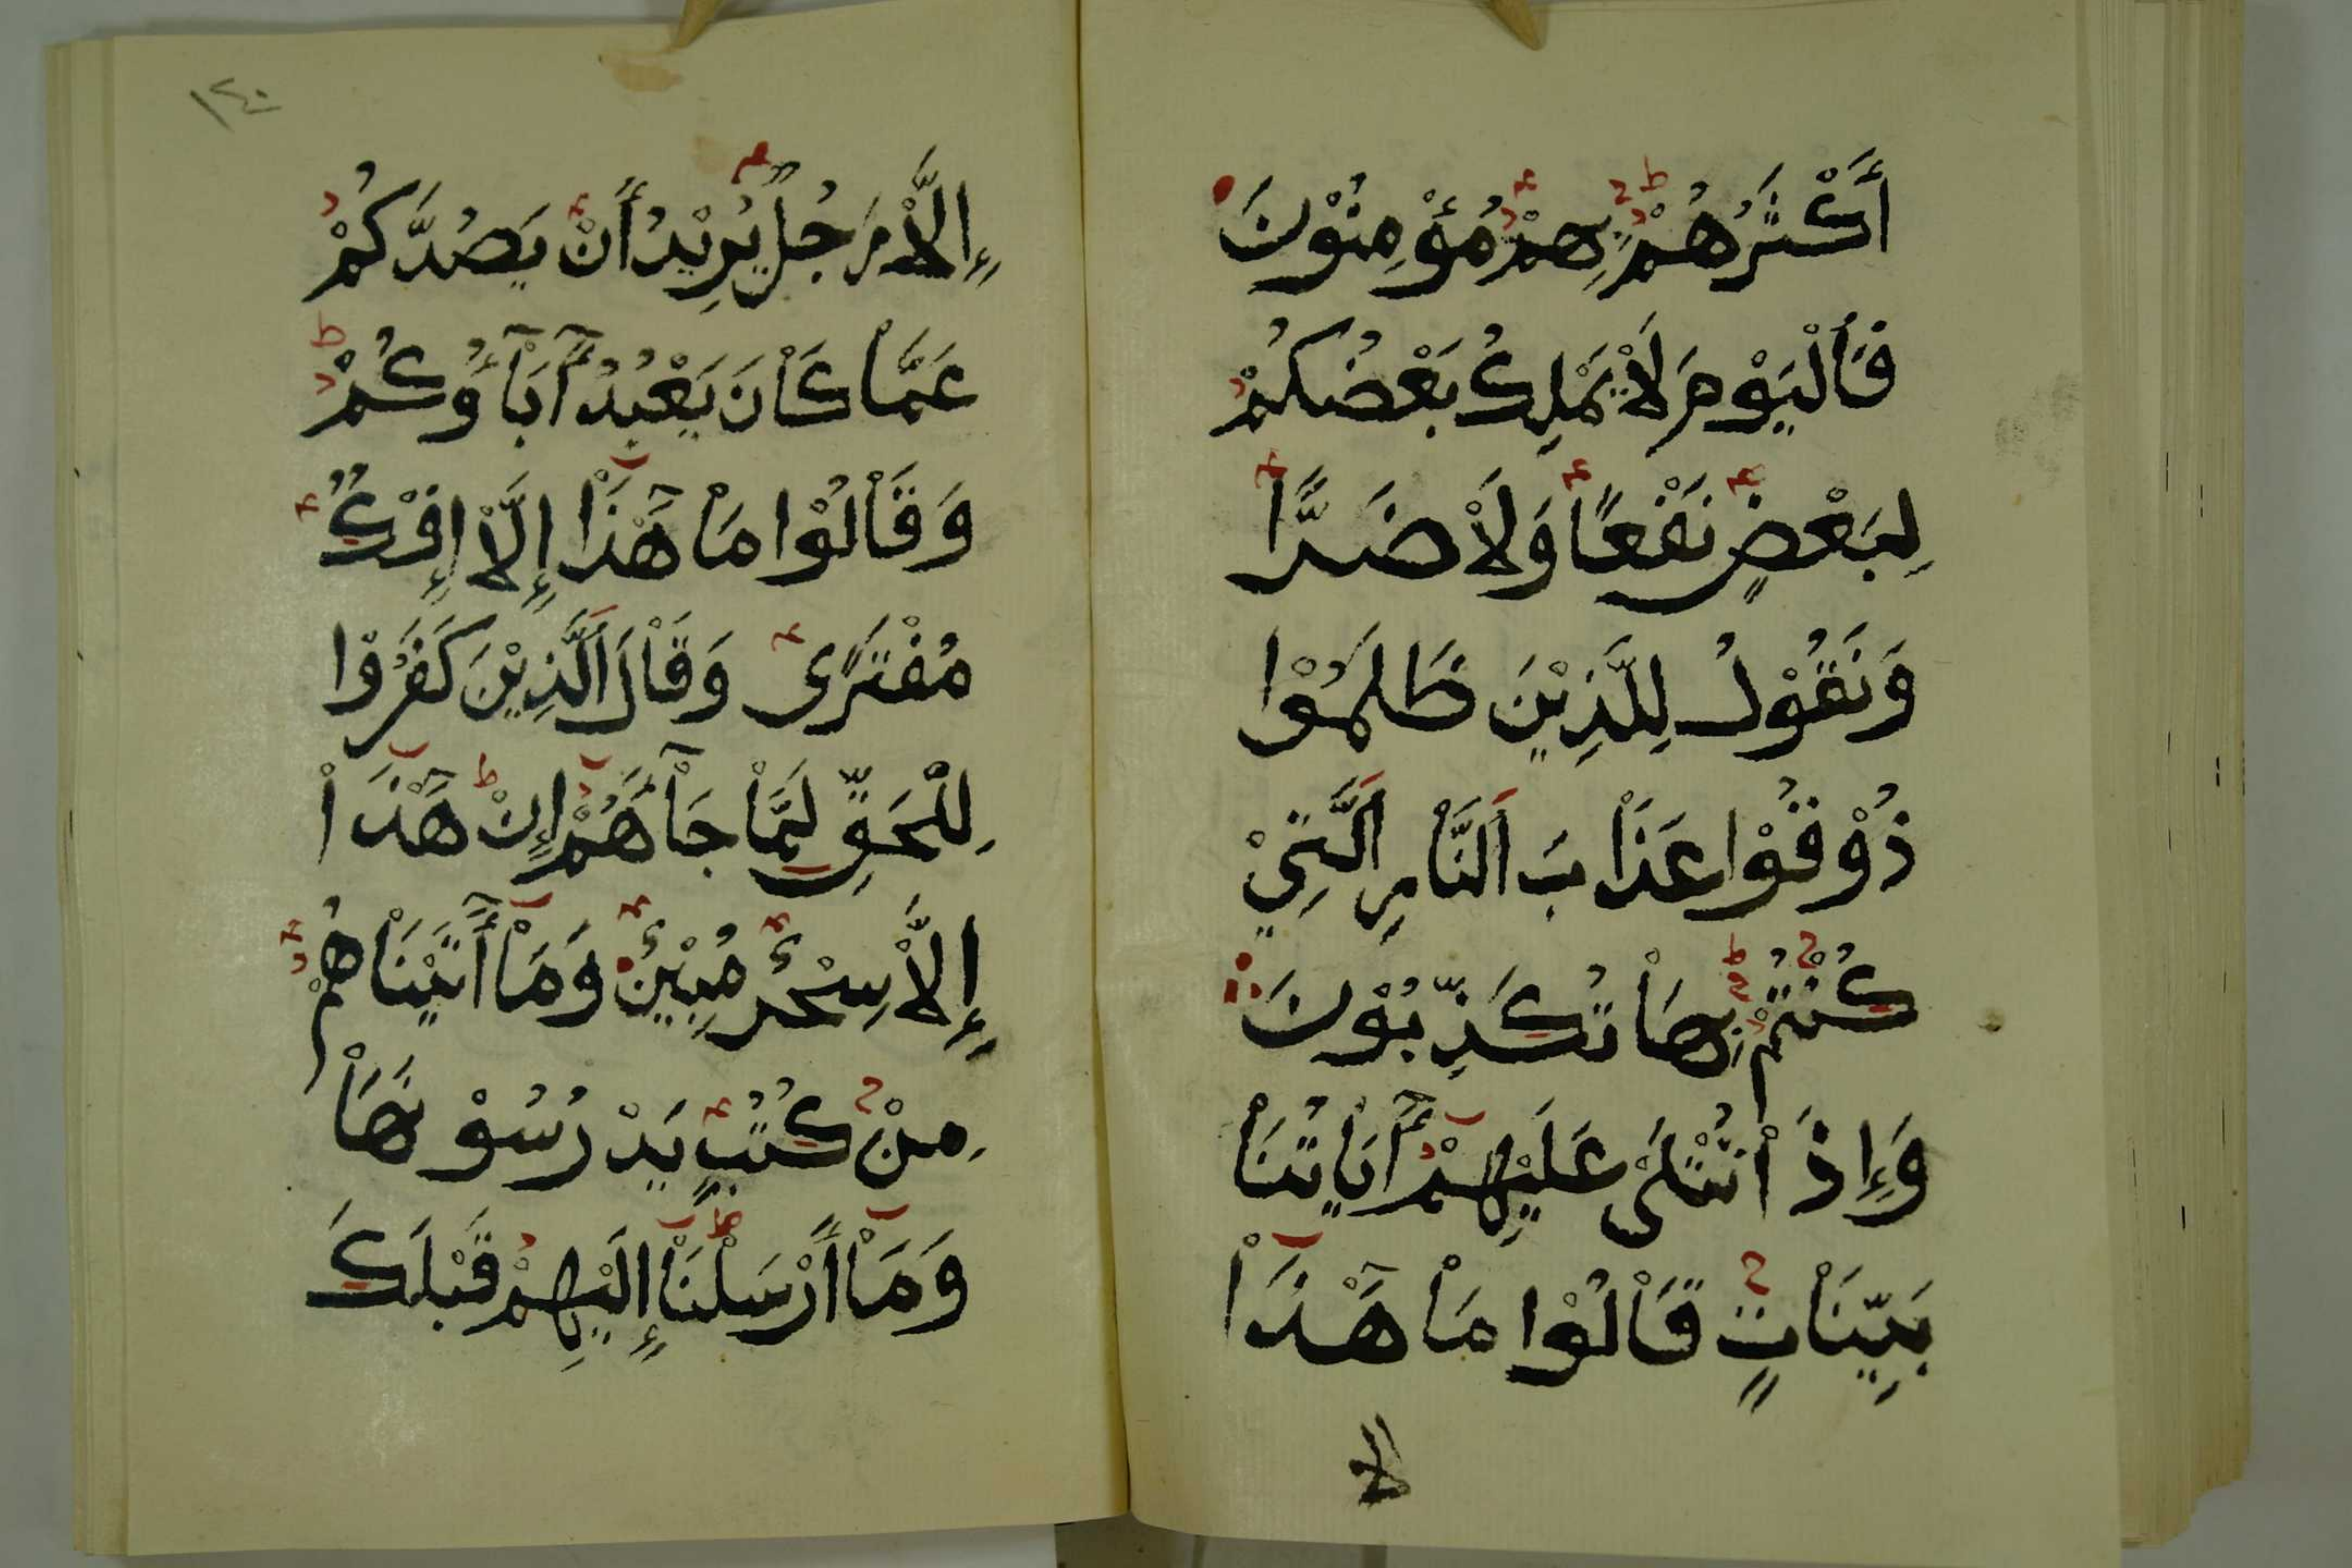 أَكْثَرُهُمْ بِهِمْ مُؤْمِنُوْنَ
فَالْيَوْمَ لَاْ يَمْلِكُ بَعْضُكُمْ
لِبَعْضٍ نَفْعًا وَلَاْ ضَرًّا
وَنَقُوْلُ لِلَّذِيْنَ ظَلَمُوْا
ذُوْقُوْا عَذَاْبَ اَلنَّاْرِ اَلَّتِيْ
كُنْتُمْ بِهَاْ تُكَذِّبُوْنَ
وَإِذَاْ تُتْلَىْ عَلَيْهِمْ آيَاتُنَاْ
بَيِّنَاْتٍ قَاْلُوْا مَاْ هَٰذَاْ
إلا
١٤٠
إِلَّاْ رَجُلٌ يُرِيْدُ أَنْ يَصُدَّكُمْ
عَمَّاْ كَاْنَ يَعْبُدُ آبَاْؤُكُمْ
وَقَاْلُوْا مَاْ هَٰذَاْ إِلَّاْ إِفْكٌ
مُفْتَرًى وَقَاْلَ اَلَّذِيْنَ كَفَرُوْا
لِلْحَقِّ لَمَّاْ جَاْءَهُمْ إِنْ هَٰذَاْ
إِلَّاْ سِحْرٌ مُبِيْنٌ وَمَاْ آتَيْنَاْهُمْ
مِنْ كُتُبٍ يَدْرُسُوْنَهَاْ
وَمَاْ أَرْسَلْنَاْ إِلَيْهِمْ قَبْلَكَ